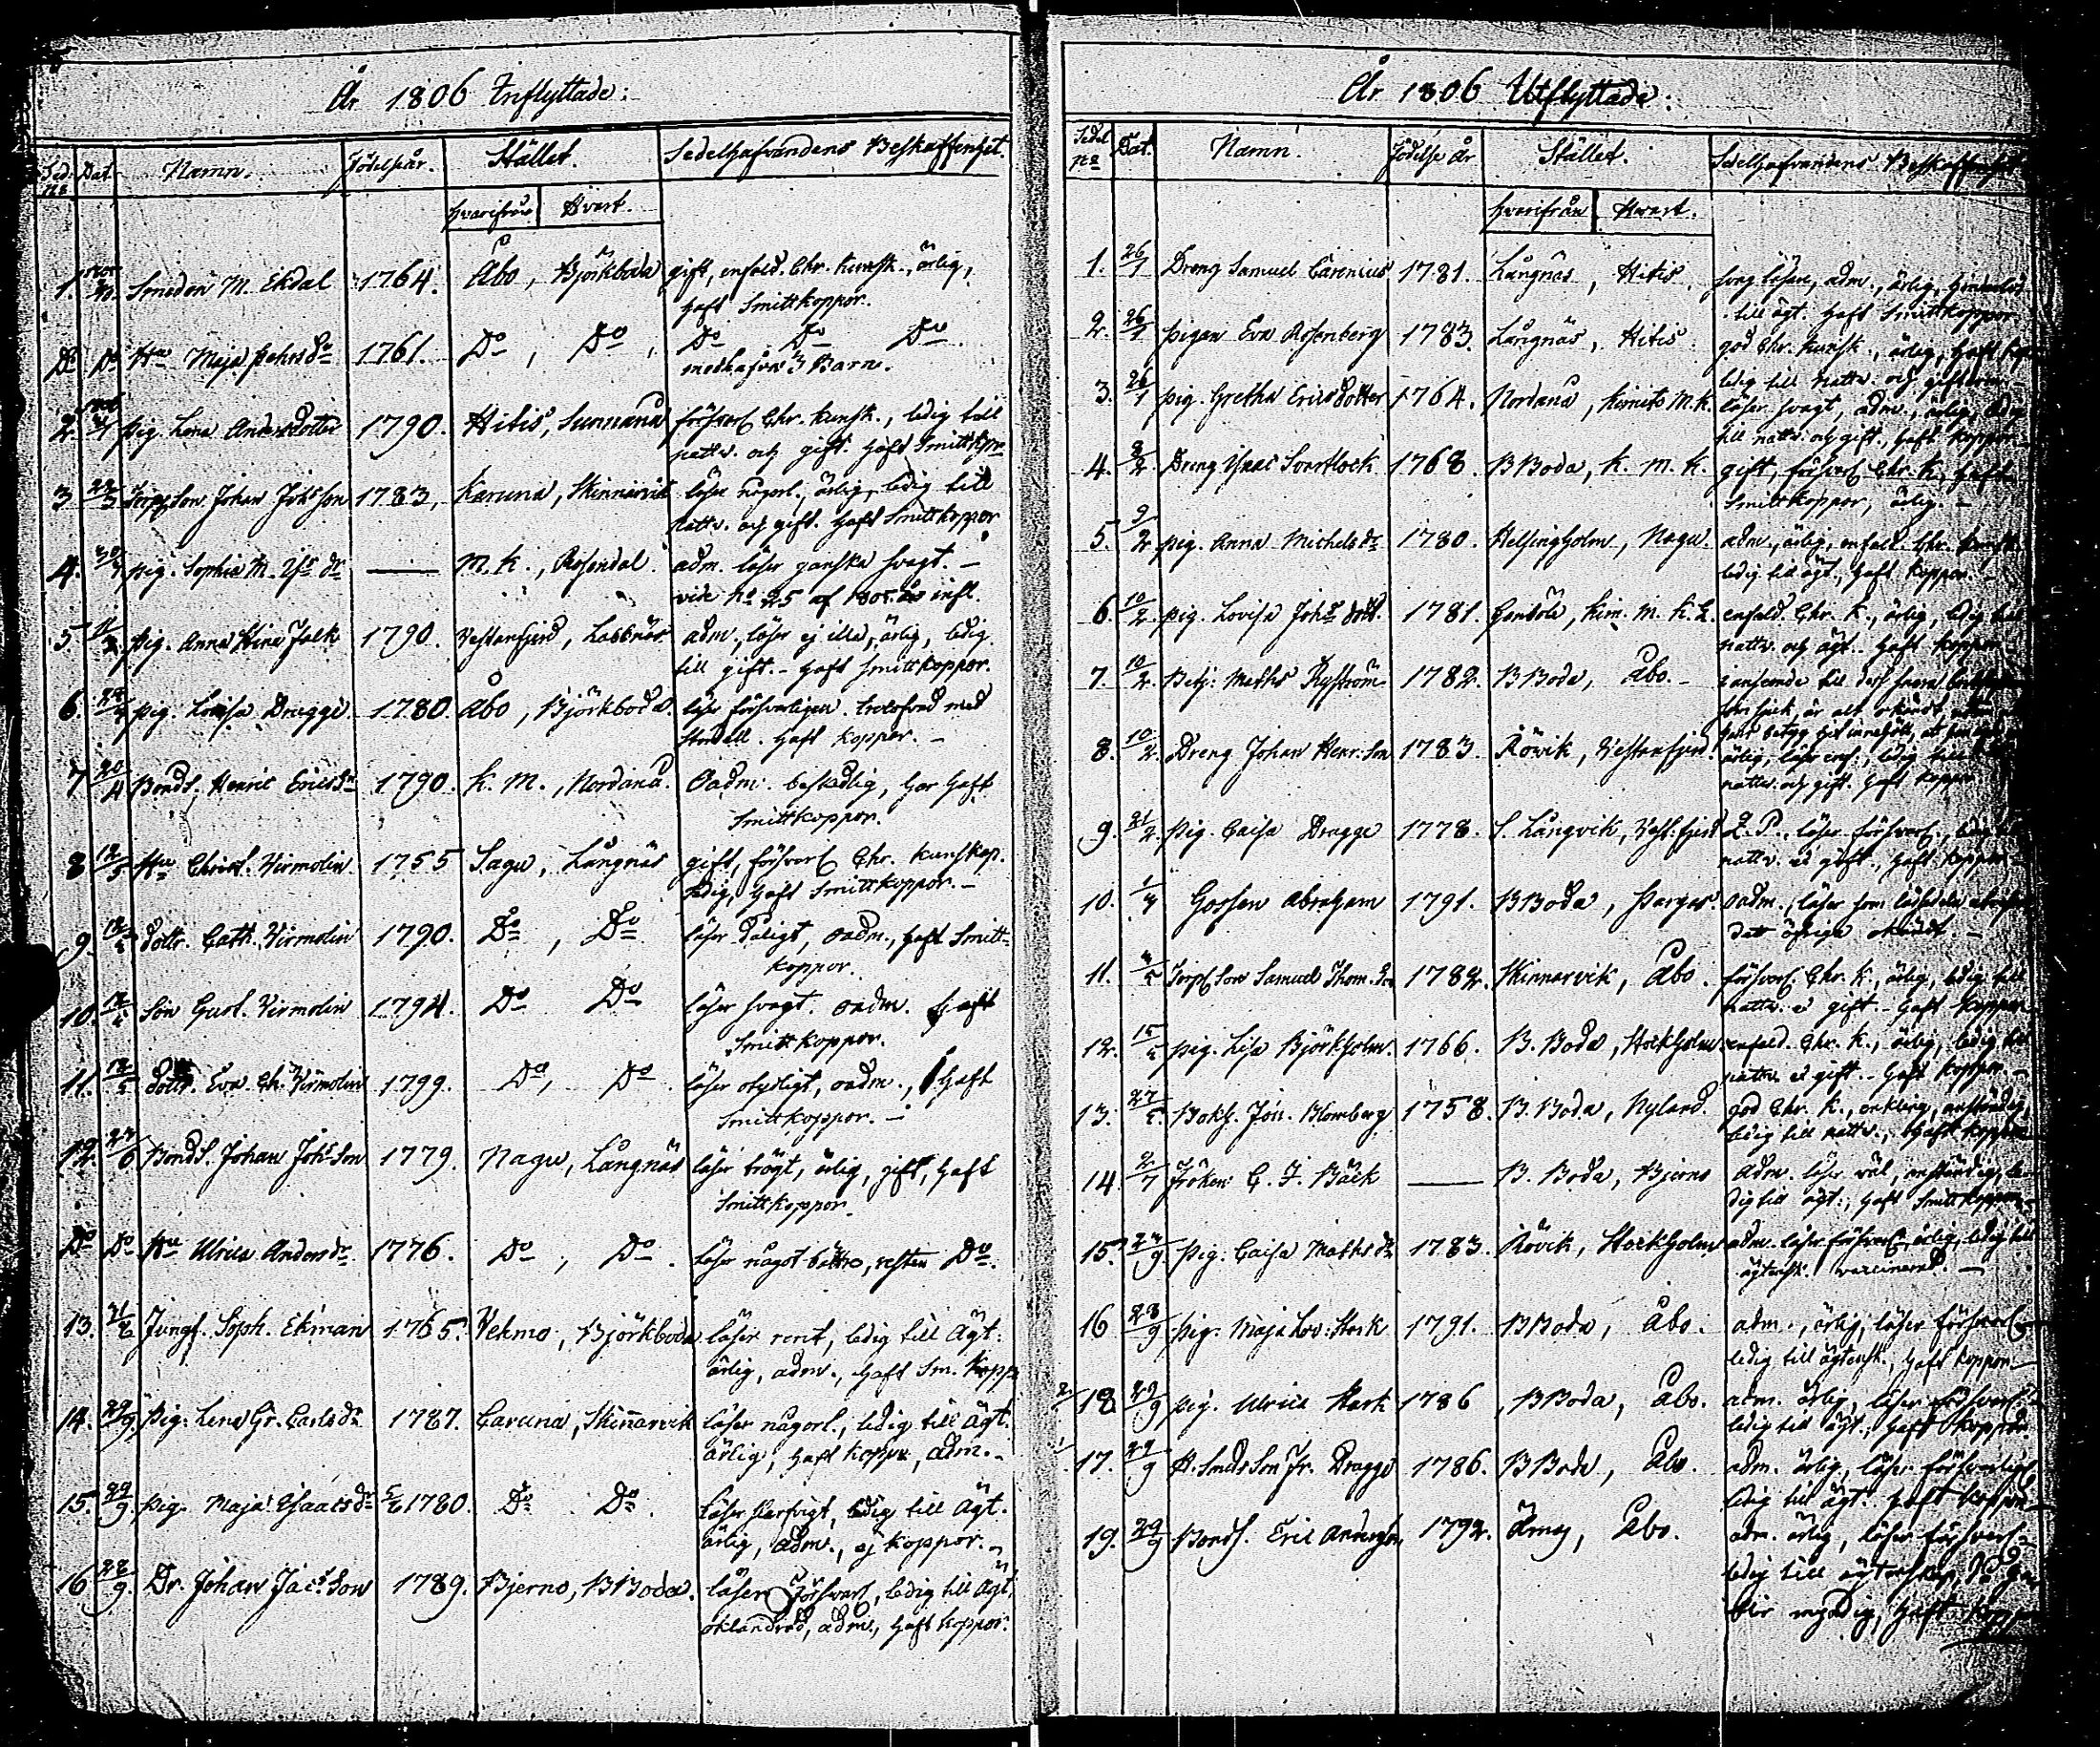 År 1806 Inflyttade:
Sed. No Dat. Namn. Födelseår. Stället. Sedelhafvandens Beskaffenhet.
hvarifrån Hvart.
1. Smeden M. Ekdal 1764. Åbo, Björkboda gift, enfald. Chr. kunsk., ärlig,
haft Smittkoppor.
Do Do Hu Maja 1761. Do, Do, Do Do Do
3 Barn.
2. pig. Lena Andersdotter 1790. Hitis, Sunnanå försvarl Chr. kunsk., ledig till
nattv. och gift. haft Smittkopr
3 22/3 Son Johan Johsson 1783, Karuna, Skinnarvik läser någorl., ärlig, ledig till
nattv. och gift. haft Smittkoppor
4. pig. Sophia M. dr — M. K., Rosendal. adm. läser ganska svagt. —
vide No 25 af 1805 infl.
5. pig. Anna Stina Falk 1790. Vestanfjerd, Labbnäs adm, läser ej illa, ärlig, ledig
till gift. - haft smittkoppor.
6. pig. Lovisa Dragge 1780. Åbo, Björkboda. läser försvarligen. trolofvad med
haft koppor. —
7 20/4 Bonds. Henric Ericsson 1790. K. M., Nordanå. Oadm. beskedlig, har haft
Smittkoppor.
8 12/5 Hu Christ. Virmolin 1755 Sagu, Långnäs gift, försvarl Chr. kunskap.
ledig, haft Smittkoppor. —
9. 12/5 dottr. Cath. Virmolin 1790. Do, Do läser dåligt, oadm., haft Smitt-
koppor.
10. 12/5 Son Gust. Virmolin 1794. Do Do läser svagt. oadm. haft
Smittkoppor.
11. 12/5 dottr. Eva Ch. Virmolin 1799. Do, Do läser otydligt, oadm., haft
Smittkoppor. —
12. 27/6 Bonds. Johan Johsson 1779. Nagu, Långnäs läser trögt, ärlig, gift, haft
Smittkoppor.
Do Do Hu Ulrica Andersdr 1776. Do, Do. läser något bättre, resten Do.
13. Jungf. Soph. Ekman 1765. Vehmo, Björkboda läser rent, ledig till Ägt.
ärlig, adm., haft Sm. kopp
14. 29/9. pig. Lena Gr. Carlsdr 1787. Caruna, Skinnarvik läser någorl., ledig till ägt.
ärlig, haft koppr, adm. -
15. 29/9. pig. Maja Isaacsdr 1780. Do Do. läser ledig till ägt.
ärlig, adm., ej koppor. -
16 28/9. Dr. Johan Jacsson 1789. Bjerno, BBoda. läser försvarl, ledig till Ägt.
oklandrad, adm., haft koppor.
År 1806 Utflyttade:
Sedel No Dat. Namn. Födelse År Stället. Sedelhafvandens Beskaffenhet
hvarifrån Hvart.
1. 26/1 Dreng Samuel Carenius 1781. Långnäs, Hitis. läsare, adm., ärlig,
till ägt. haft Smittkoppor
2. 26/1 pigan Eva Rosenberg 1783. Långnäs, Hitis god Chr. kunsk., ärlig, haft
ledig till nattv. och
3. 26/1 pig. Gretha Ericsdotter 1764. Nordanå, Kimito M. K. läser svagt, adm., ärlig, ledig
till nattv. och gift., haft koppor
4. 8/2 Dreng Isaac 1768. BBoda, K. M. K. gift, försvarl Chr. K., haft
Smittkoppor, ärlig. -
5. 9/2 pig. Anna Michelsdr 1780. Helsingholm, Nagu. adm., ärlig, enfald. Chr. kunsk.
ledig till ägt., haft koppor. -
6. 10/2. pig. Lovisa Johs dott. 1781. Kim. M. K. enfald. Chr. K., ärlig, ledig till
nattv. och ägt. haft koppor
7. 10/2. Betj. Maths Nyström 1782. BBoda, Åbo. -
8. 10/2. Dreng Johan Henr. Son 1783. Rövik, Vestanfjerd. ärlig, läser enf., ledig till
nattv. och gift. haft koppor
9. 21/2. pig. Caisa Dragge 1778. S. Långvik, Vest.fjerd läser försvarl.
nattv. o gift., haft koppor. -
10. Gossen Abraham 1791. BBoda, Pargas. oadm., läser som
det öfriga okändt. —
11. Son Samuel Thom. 1782. Skinnarvik, Åbo försvarl Chr. K., ärlig, ledig till
nattv. o gift. - haft koppor
12. 15/5 pig. Lisa Björkholm. 1766. B. Boda, Stockholm enfald. Chr. K., ärlig, ledig till
nattv. o gift. - haft koppor. -
13. 27/5. Bokh. Jon. Blomberg 1758. B. Boda, Nyland. god Chr. K., anständig
ledig till nattv., haft koppor
14. 2/7 Fröken C. F. Bäck — B. Boda, Bjerno adm. läser väl, anständig, le-
dig till ägt., haft Smittkoppor
15. pig. Caisa Mathsdr 1783. Rövik, Stockholm adm. läser försvarl, ärlig, ledig till
ägtensk. vaccinerad. —
16 28/9 pig. Maja Lov. Stark 1791. BBoda, Åbo. adm., ärlig, läser försvarl
ledig till ägtensk., haft koppor. —
18. 29/9 pig. Ulrica Stark 1786 BBoda, Åbo. adm. ärlig, läser försvarl
ledig till ägt., haft koppor.
17. 29/9 Son Fr. Dragge 1786. BBoda, Åbo. adm. ärlig, läser försvarligt
ledig till ägt. haft koppor —
19. 29/9 Bonds. Eric Andersson 1792. Åbo. adm. ärlig, läser försvarl -
ledig till ägtenskap, då han
blir myndig, haft kopp